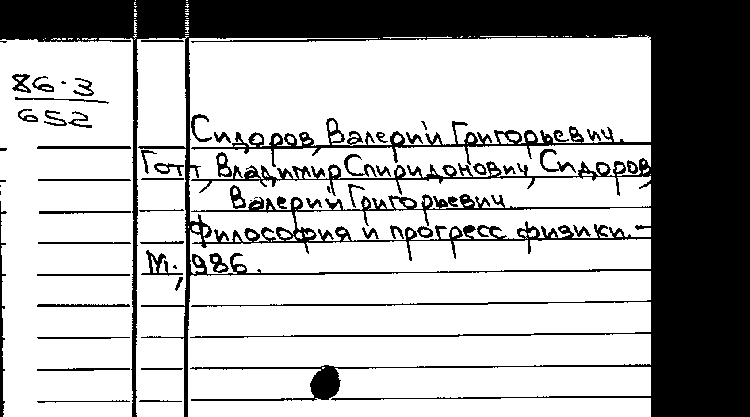 86·3
652
Сидоров, Валерий Григорьевич.
Готт, Владимир Спиридонович, Сидоров,
Валерий Григорьевич.
Философия и прогресс физики.–
М., 1986.